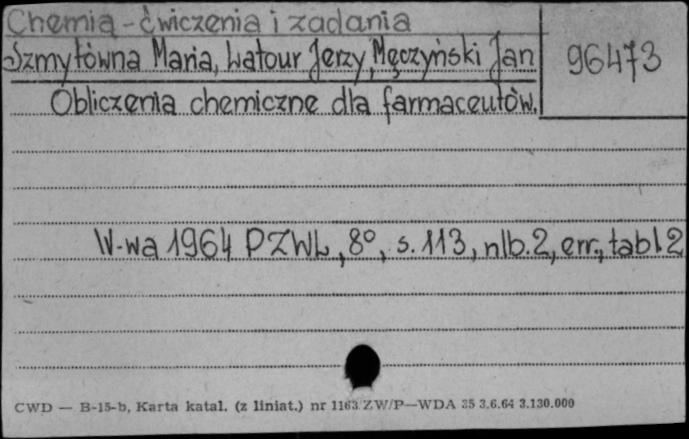 Chemia - ćwiczenia i zadania
Szmytówna Maria, Latour Jerzy, Męczyński Jan
96473
Obliczenia chemiczne dla farmaceutów.
W-wa 1964 PZWL, 8°, s. 113, nlb. 2, err., tabl 2
CWD — B-15-b, Karta katal. (z liniat.) nr 1163 ZW/P—WDA 35 3.6.64 3.130.000